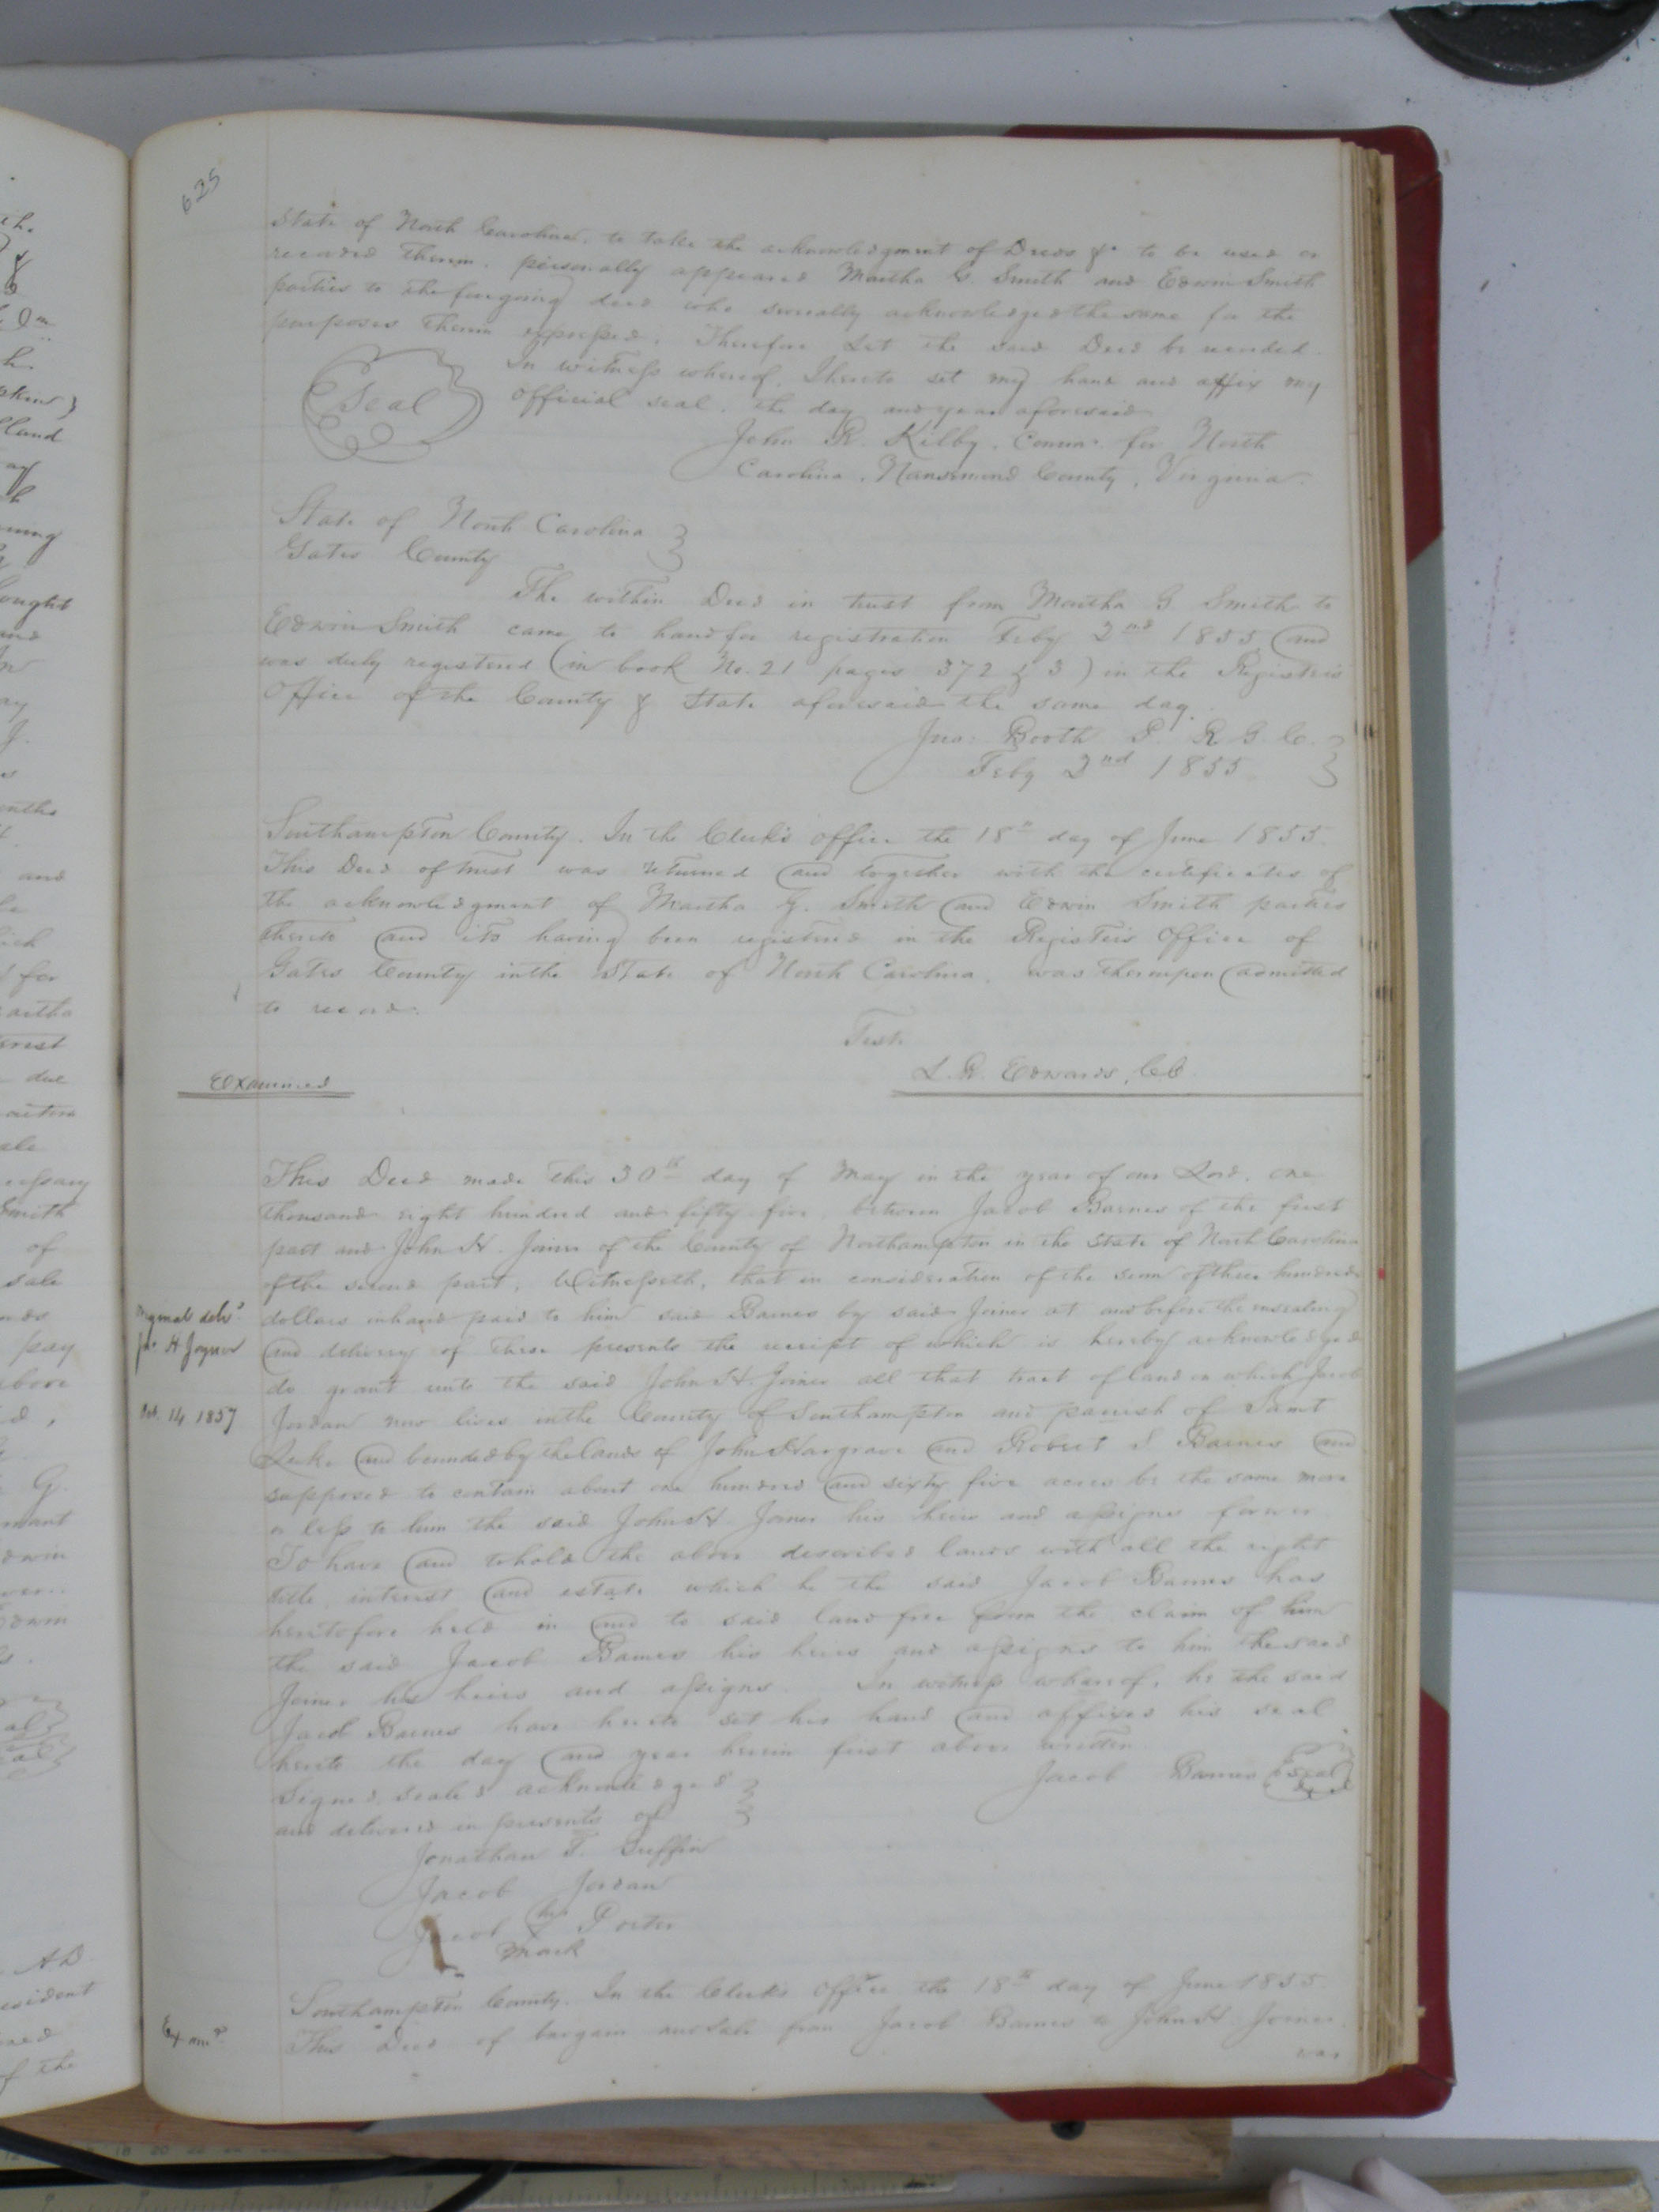 625
State of North Carolina, to take the acknowledgment of Deeds &c to be used or
recorded therein. personally appeared Martha G. Smith and Edwin Smith
parties to the foregoing deed who severally acknowledged the same for the
purposes therein expressed. Therefore Let the said Deed be recorded.
In witness whereof, I hereto set my hand and affix my
Seal
official seal. the day and year aforesaid
John R. Kilby. Commr. for North
Carolina. Nansemond County, Virginia.
State of North Carolina
Gates County
The within Deed in trust from Martha G. Smith to
Edwin Smith came to hand for registration Feby 2nd 1855 and
was duly registered (in book No. 21 pages 372 & 3) in the Registers
Office of the County & State aforesaid the same day.
Jno. Booth P. R. G. C.
Feby 2nd 1855
Southampton County. In the Clerk's office the 18th day of June 1855.
This Deed of trust was returned and together with the certificates of
the acknowledgment of Martha G. Smith and Edwin Smith parties
thereto and its having been registered in the Register's Office of
Gates County in the State of North Carolina. was thereupon admitted
to record.
Teste
Examined
L. R. Edwards, CC.
This Deed made this 30th day of May in the year of our Lord, one
thousand eight hundred and fifty five, between Jacob Barnes of the first
part and John H. Joiner of the County of Northampton in the State of North Carolina
of the second part, Witnesseth, that in consideration of the sum of three hundred
original deld.
dollars in hand paid to him said Barnes by said Joiner at and before the ensealing
Jno H Joyner
and delivery of these presents the receipt of which is hereby acknowledged
do grant unto the said John H. Joiner all that tract of land on which Jacob
14 1857
Jordan now lives in the County of Southampton and parish of Saint
Luke and bounded by the lands of John Hargrave and Robert S Barnes and
supposed to contain about one hundred and sixty five acres be the same more
or less to him the said John H Joiner his heirs and assigns forever
To have and to hold the above described lands with all the right
title, interest and estate which he the said Jacob Barnes has
heretofore held in and to said land free from the claim of him
the said Jacob Barnes his heirs and assigns to him the said
Joiner his heirs and assigns. In witness whereof, he the said
Jacob Barnes have hereto set his hand and affixed his seal
hereto the day and year herein first above written.
Jacob Barnes Seal
Signed, sealed acknowledged
and delivered in presents of
Jonathan T. Griffin
Jacob Jordan
his
Jacob X Porter
mark
Southampton County. In the Clerk's Office the 18th day of June 1855
Examd
This Deed of bargain and sale from Jacob Barnes to John H Joiner.
was